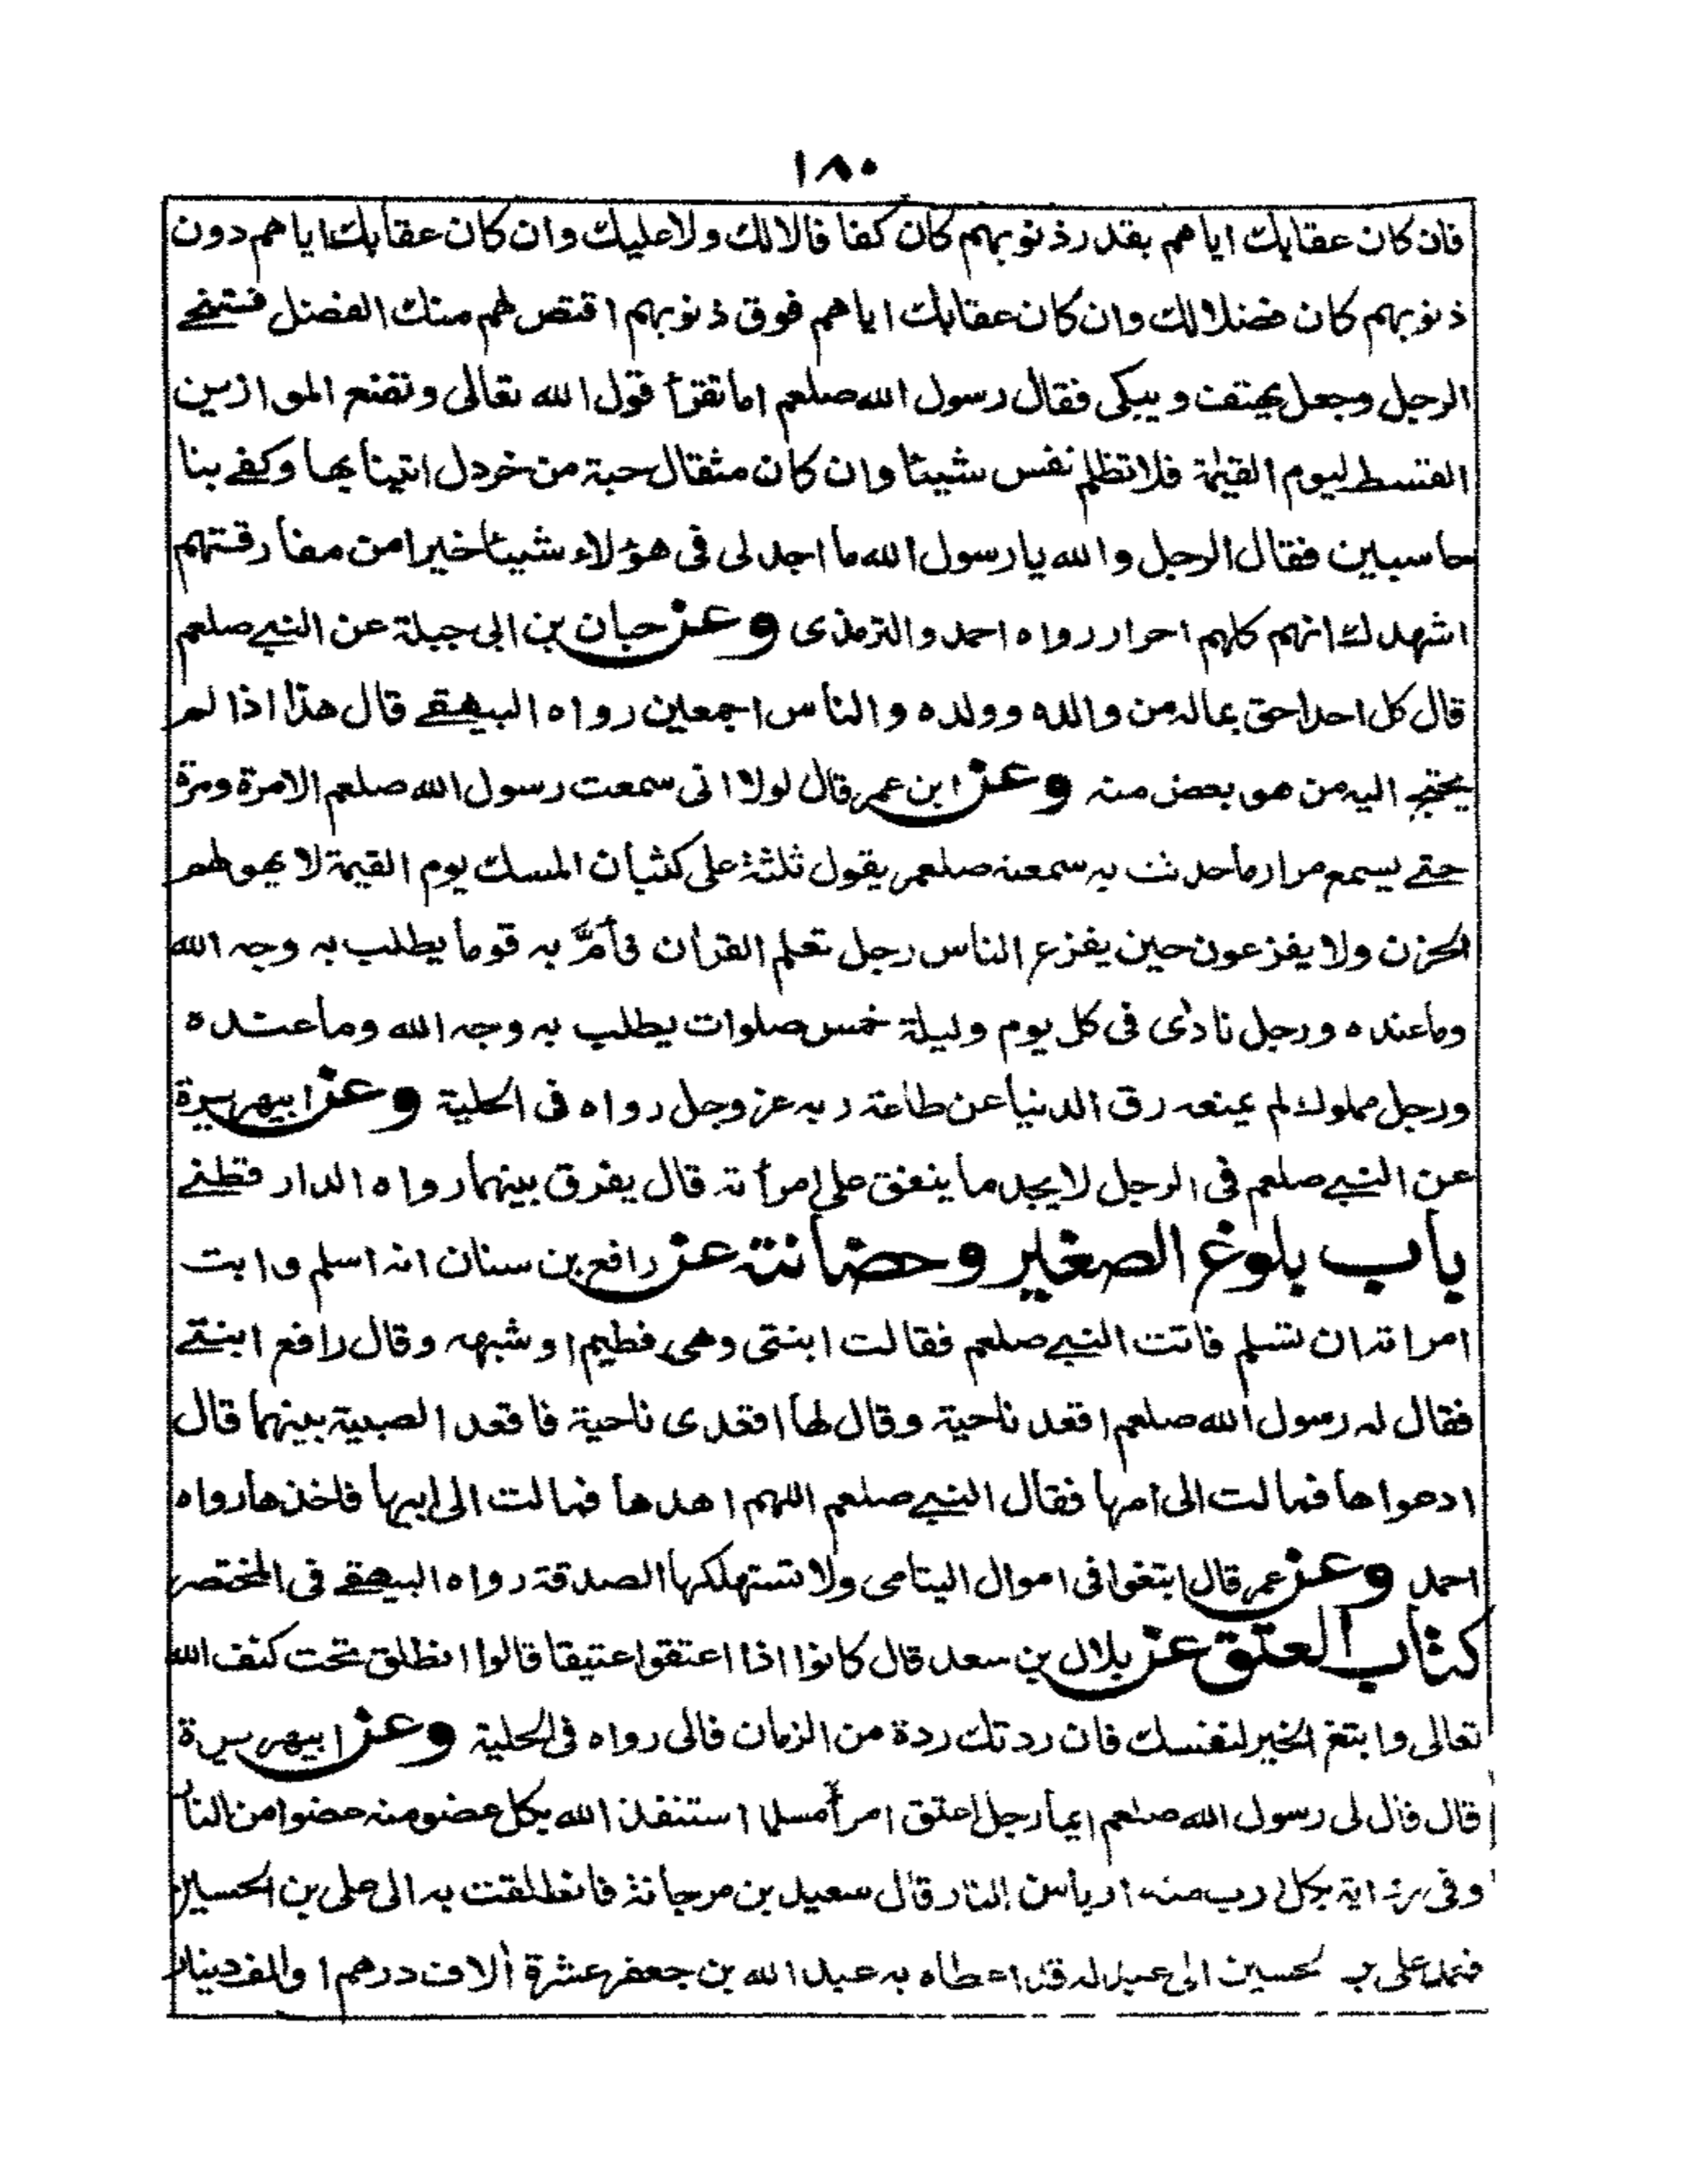 ١٨٠
فان كان عقابك اياهم بقدر ذنوبهم كان كفافا لا لك ولا عليك وان كان عقابك اياهم دون
ذنوبهم كان فضلا لك وان كان عقابك اياهم فوق ذنوبهم اقتص لهم منك الفضل فتنحے
الرجل وجعل يهتف ويبكى فقال رسول الله صلعم اما تقرأ قول الله تعالى ونضع الموازين
القسط ليوم القيٰمة فلا تظلم نفس شيئا وان كان مثقال حبة من خردل اتينا بها وكفے بنا
حاسبين فقال الرجل والله يا رسول الله ما اجد لى فى هؤلاء شيئا خيرا من مفارقتهم
اشهدك انهم كلهم احرار رواه احمد والترمذى وعن حبان بن ابى جبلة عن النبے صلعم
قال كل احد احق بماله من والده وولده والناس اجمعين رواه البيهقے قال هذا اذا لم
يحتج اليه من هو بعض منه وعن ابن عمر قال لولا انى سمعت رسول الله صلعم الا مرة ومرة
حتے يسمع مرار ما حدثت به سمعته صلعم يقول ثلثة على كثبان المسك يوم القيمة لا يهولهم
الحزن ولا يفزعون حين يفزع الناس رجل تعلم القرأن فأمَّ به قوما يطلب به وجه الله
وما عنده ورجل نادٰى فى كل يوم وليلة خمس صلوات يطلب به وجه الله وما عنده
ورجل مملوك لم يمنعه رق الدنيا عن طاعة ربه عز وجل رواه فى الحلية وعن ابيهريرة
عن النبے صلعم فى الرجل لا يجد ما ينفق على امرأته قال يفرق بينهما رواه الدار قطنے
باب بلوغ الصغير وحضانته عن رافع بن سنان انه اسلم وابت
امراته ان تسلم فاتت النبے صلعم فقالت ابنتى وهى فطيم او شبهه وقال رافع ابنتے
فقال له رسول الله صلعم اقعد ناحية وقال لها اقعدى ناحية فاقعد الصبية بينهما قال
ادعواها فمالت الى امها فقال النبے صلعم اللهم اهدها فمالت الى ابيها فاخذها رواه
احمد وعن عمر قال ابتغوا فى اموال اليتامى ولا تستهلكها الصدقة رواه البيهقے فى المختصر
كتاب العتق عن بلال بن سعد قال كانوا اذا اعتقوا عتيقا قالوا انطلق تحت كنف الله
تعالى وابتغ الخير لنفسك فان ردتك ردة من الزمان فالى رواه فى الحلية وعن ابيهريرة
قال قال لى رسول الله صلعم ايما رجل اعتق امرأ مسلما استنقذ الله بكل عضو منه عضوا من النار
وفى رواية بكل ارب منه اربا من النار قال سعيد بن مرجانة فانطلقت به الى على بن الحسين
فعمد على بن حسين الى عبد له قد اعطاه به عبد الله بن جعفر عشرة ألاف درهم او الف دينار